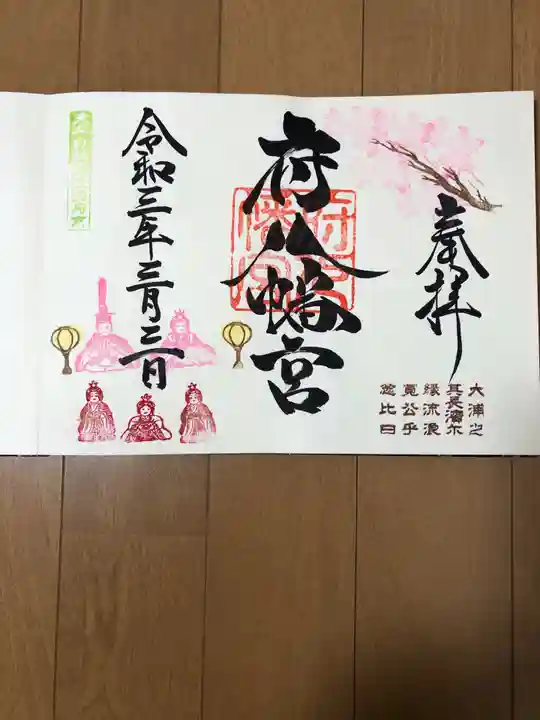 奉拝
大浦之
其長濱尓
縁流浪
寛公乎
念比日
府八幡宮
府八
幡宮
令和三年三月三日